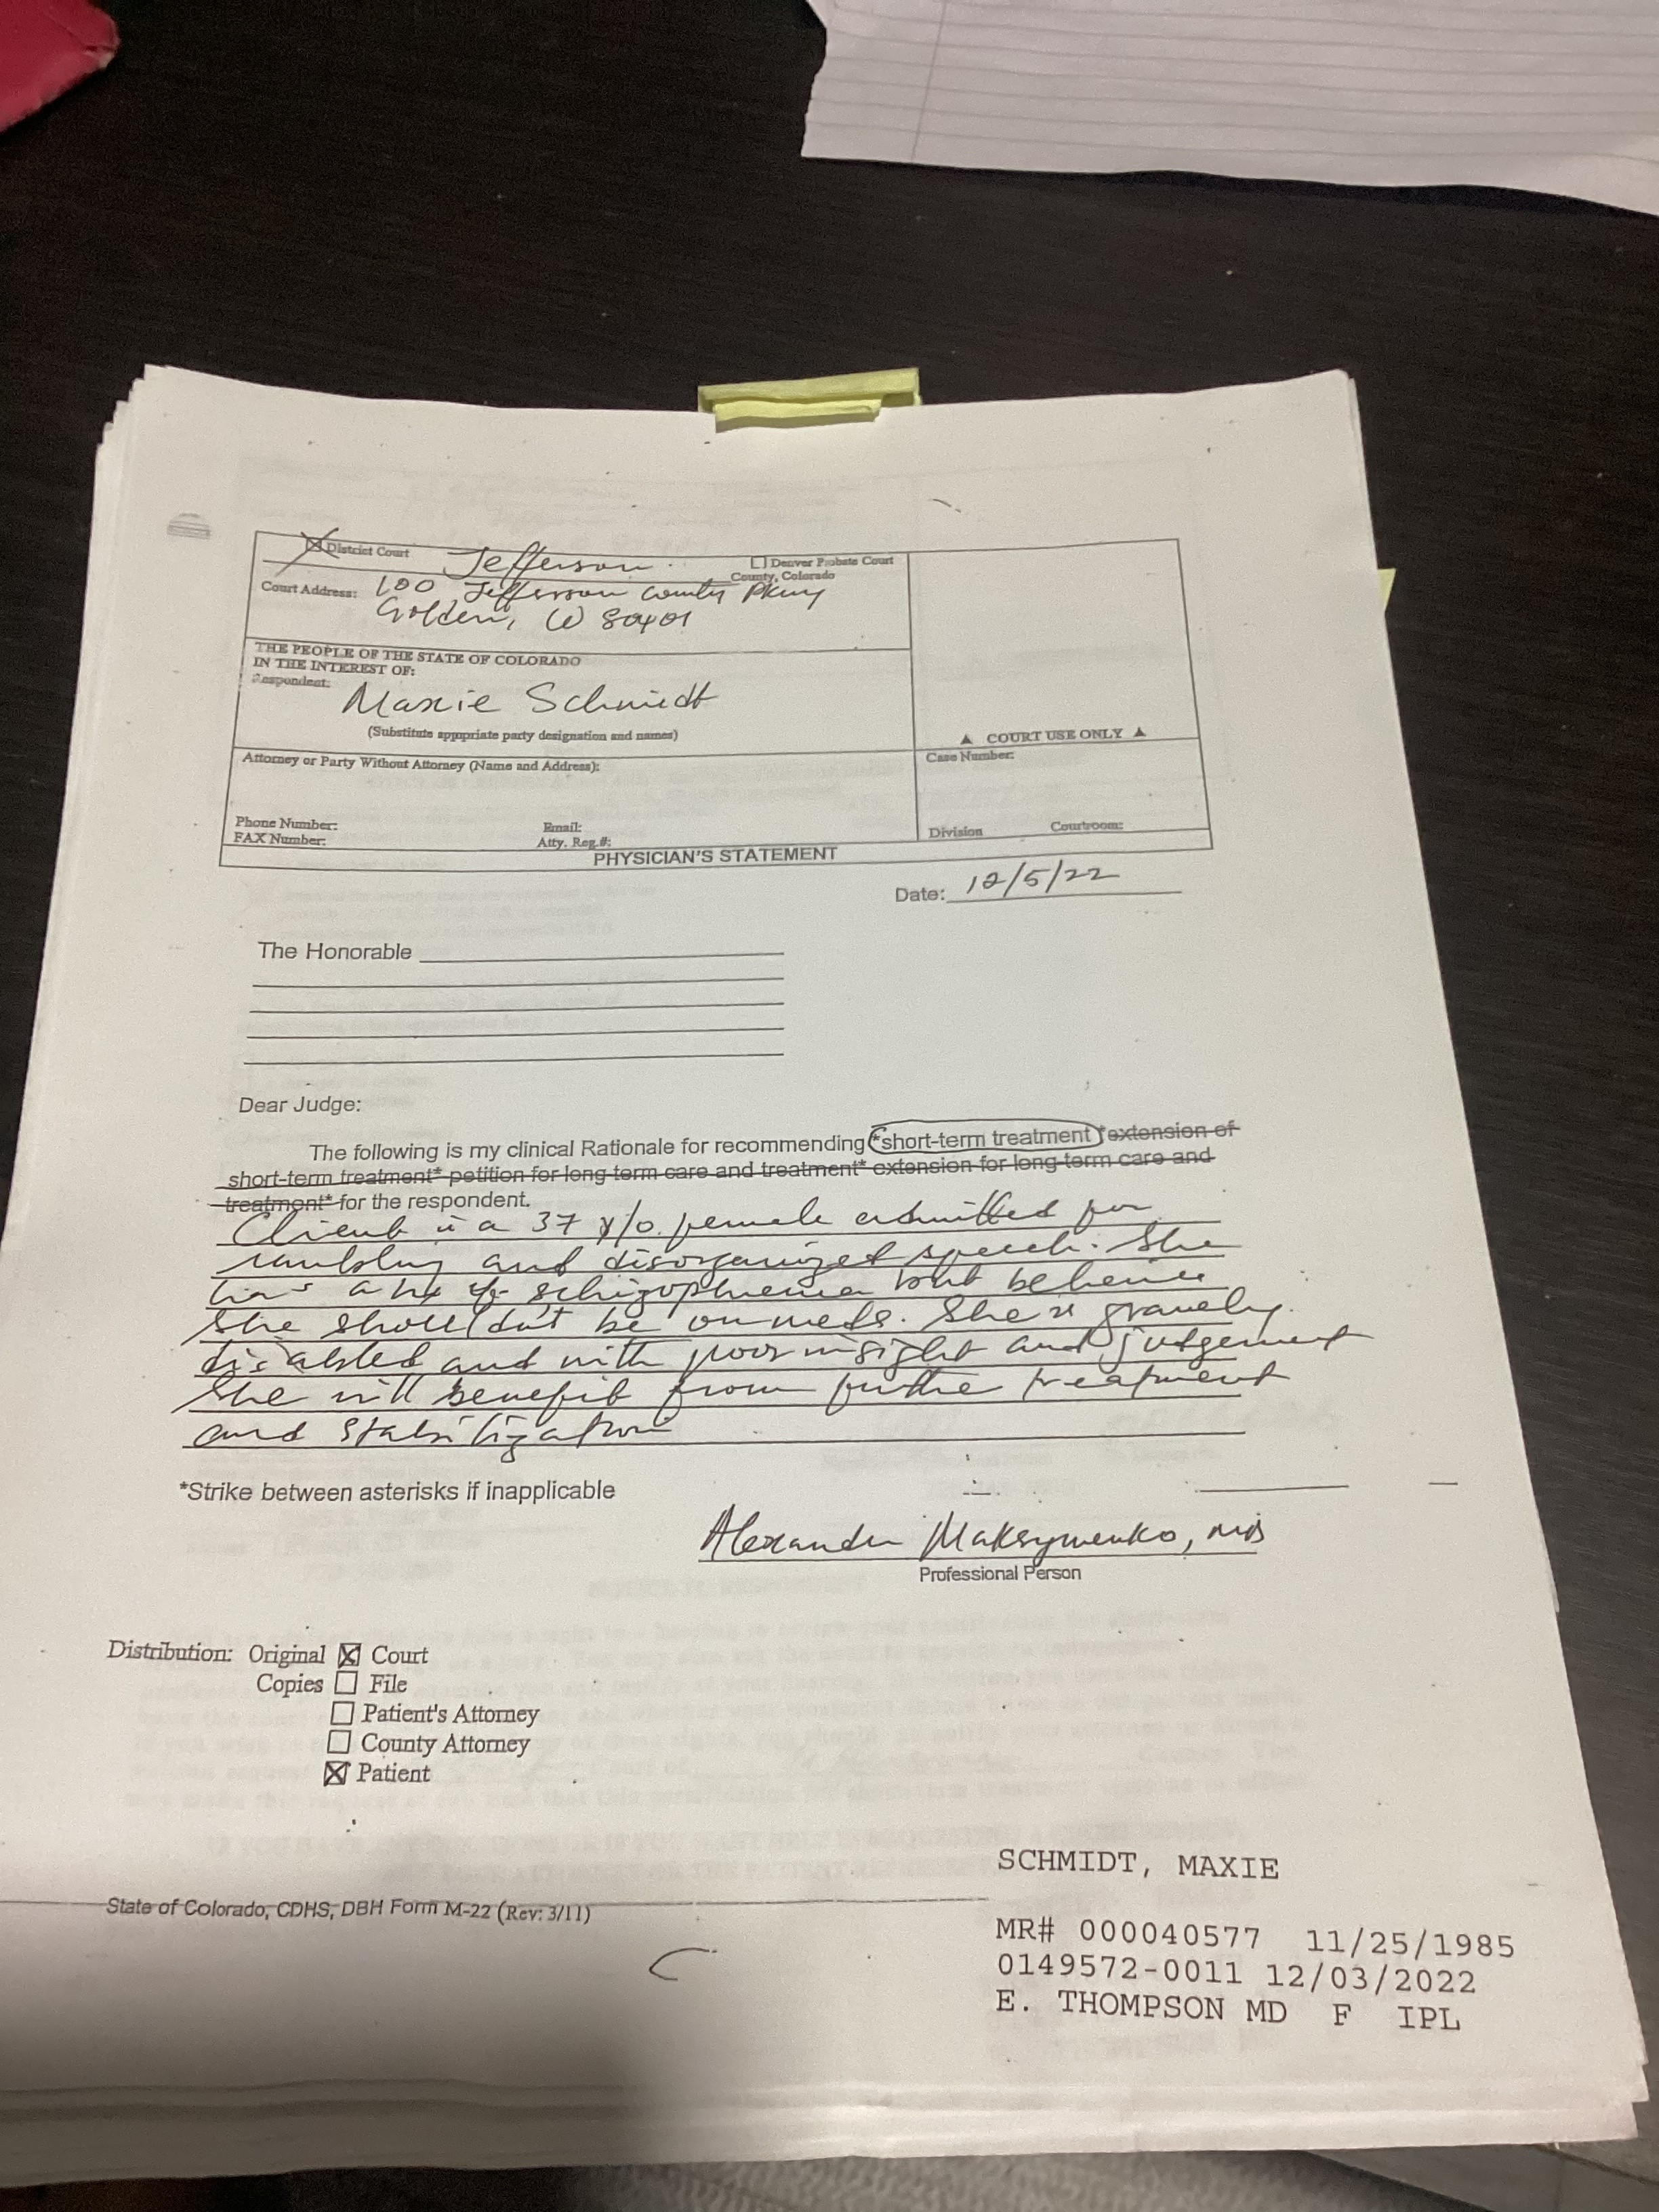 District Court Jefferson ☐ Denver Probate Court
County, Colorado
Court Address: 100 Jefferson County Pkwy
Golden, CO 80401
THE PEOPLE OF THE STATE OF COLORADO
IN THE INTEREST OF:
Respondent:
Maxie Schmidt
(Substitute appropriate party designation and names)
▲ COURT USE ONLY ▲
Attorney or Party Without Attorney (Name and Address):
Case Number:
Phone Number: Email:
FAX Number: Atty. Reg.#:
Division Courtroom:
PHYSICIAN'S STATEMENT
Date: 12/5/22
The Honorable
Dear Judge:
The following is my clinical Rationale for recommending *short-term treatment* extension of
short-term treatment* petition for long-term care and treatment* extension for long-term care and
treatment* for the respondent.
Client is a 37 y/o. female admitted for
rambling and disorganized speech. She
has a hx of schizophrenia but believes
she shouldn't be on meds. She is gravely
disabled and with poor insight and judgement
She will benefit from further treatment
and stabilization
*Strike between asterisks if inapplicable
Alexander Maksymenko, MD
Professional Person
Distribution: Original ☒ Court
Copies ☐ File
☐ Patient's Attorney
☐ County Attorney
☒ Patient
SCHMIDT, MAXIE
State of Colorado, CDHS, DBH Form M-22 (Rev: 3/11)
MR# 000040577 11/25/1985
0149572-0011 12/03/2022
E. THOMPSON MD F IPL